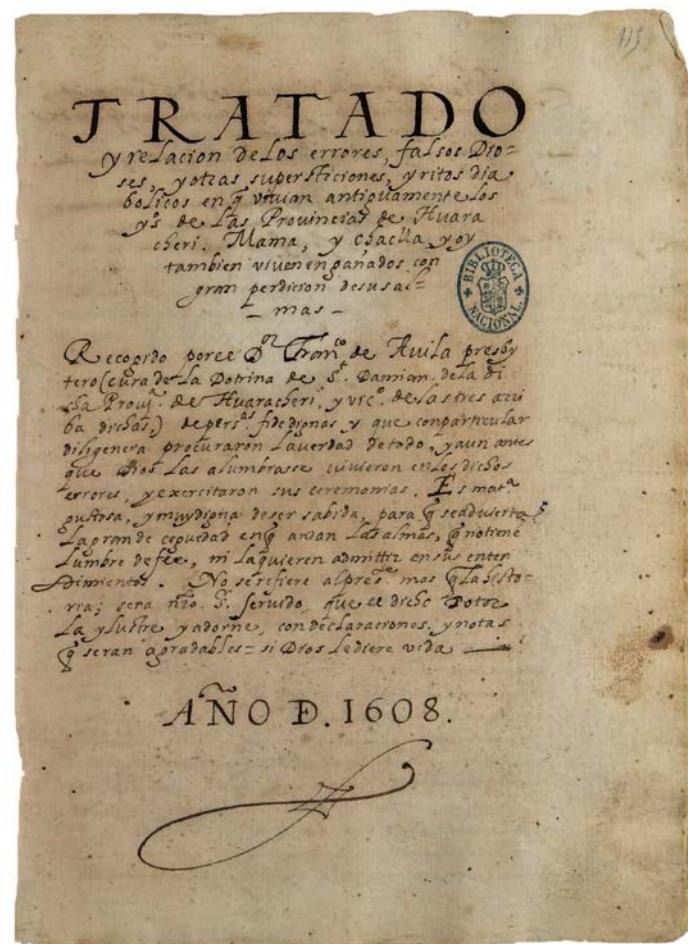 115
TRATADO
y relacion de los errores, falsos Dio=
ses, y otras supersticiones, y ritos dia
bolicos en q̃ viuian antiguamente los
y.s de las Prouincias de Huara
cheri. Mama, y chaclla y oy
tambien viuen engañados con
gran perdicion de sus al=
- mas -
BIBLIOTECA
NACIONAL
Recogido por el D.or Fran.co de Auila presby
tero (cura de la Dotrina de S.t Damian de la di
cha Prou.a de Huaracheri, y vic.o de las tres arri
ba dichas,) de pers.as fidedignas y que con particular
diligencia procuraron la verdad de todo, y aun antes
que Dios las alumbrasse viuieron en los dichos
errores, y exercitaron sus ceremonias. Es mat.a
gustosa, y muy digna de ser sabida, para q̃ se aduierta
la grande ceguedad en q̃ andan las almas, q̃ no tiene
lumbre de fee, ni la quieren admittir en sus enten
dimientos. No se refiere al pres.te mas q̃ la histo-
ria; sera nr̃o. S. seruido, que el dicho Dotor
la ylustre y adorne, con declaraciones, y notas
q̃ seran agradables = si Dios le diere vida
AÑO D. 1608.